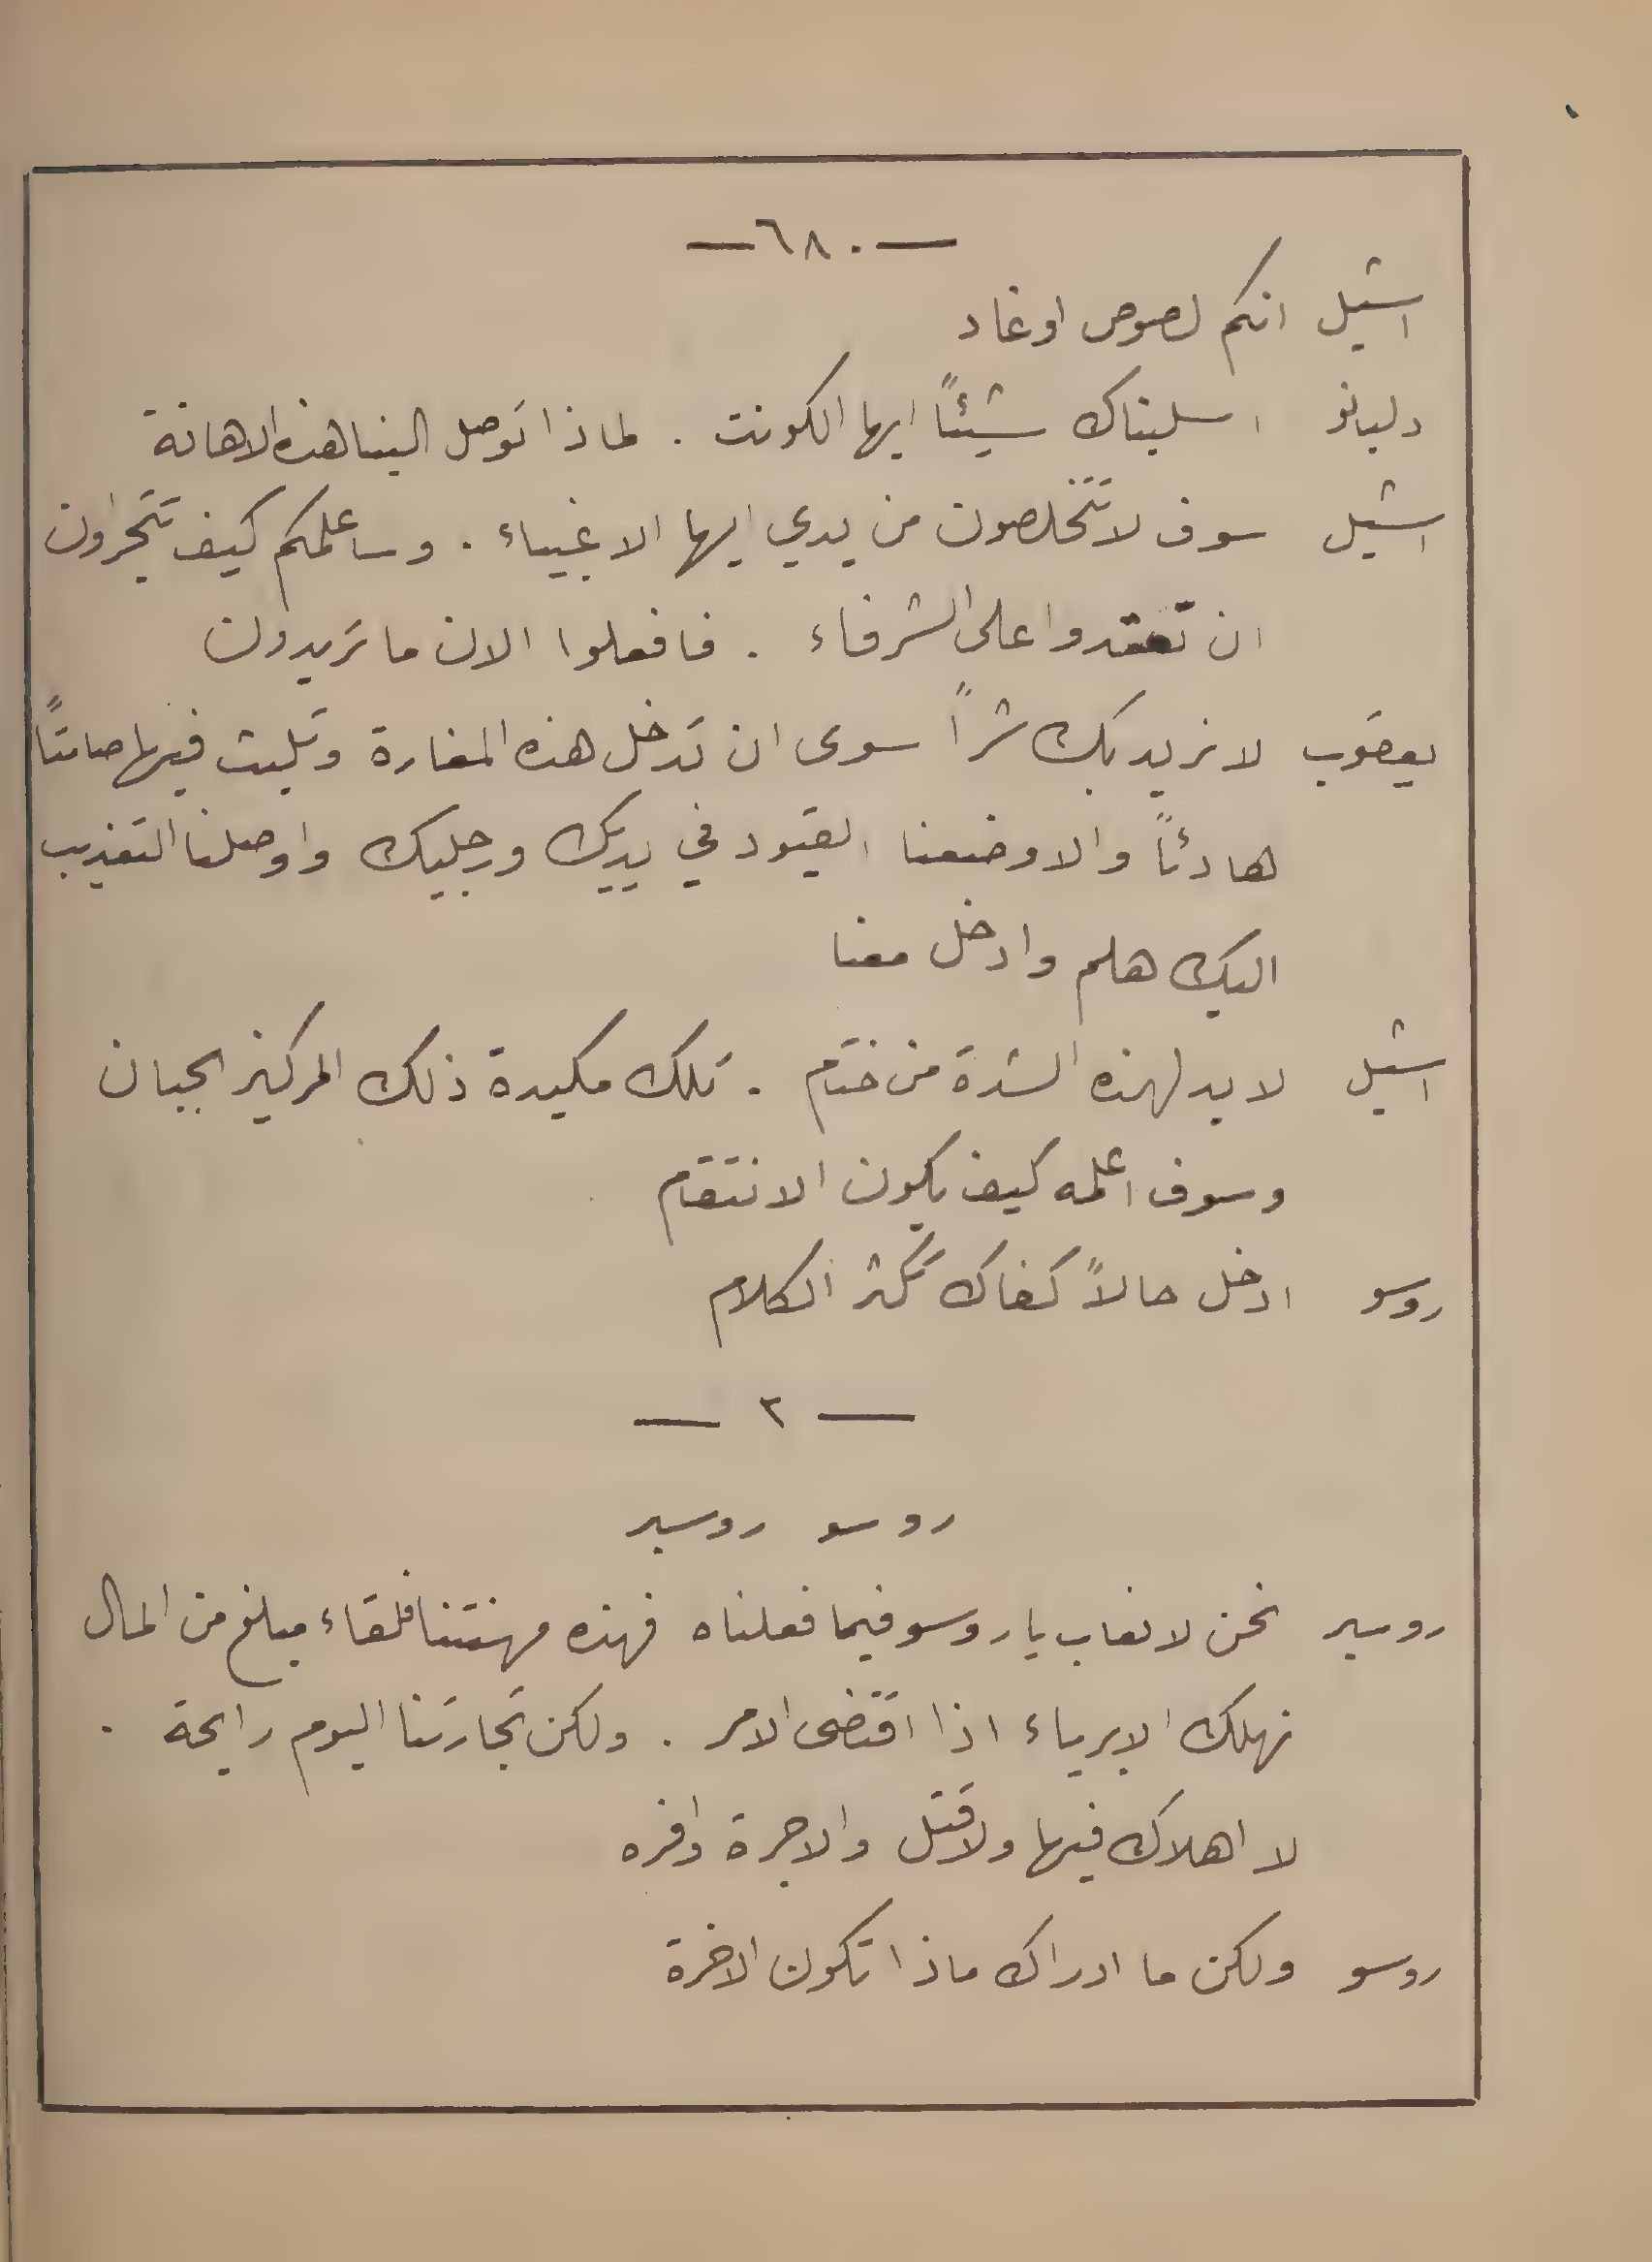 — ٦٨٠ —
اشيل انكم لصوص اوغاد
دليانو اسلبناك شيئاً ايها الكونت . لماذا توصل الينا هذه الاهانة
اشيل سوف لا تتخلصون من يدي ايها الاغبياء . وساعلمكم كيف تتجرأون
ان تعتدوا على الشرفاء . فافعلوا الان ما تريدون
يعقوب لا نريد بك شراً سوى ان تدخل هذه المغارة وتلبث فيها صامتاً
هادئاً والا وضعنا القيود في يديك ورجليك واوصلنا التعذيب
اليك هلم وادخل معنا
اشيل لا بد لهذه الشدة من ختام . تلك مكيدة ذلك المركيز الجبان
وسوف اعلمه كيف يكون الانتقام
روسو ادخل حالاً كفاك تكثر الكلام
— ٢ —
روسو روسير
روسير نحن لا نعاب يا روسو فيما فعلناه فهذه مهنتنا فلقاء مبلغ من المال
نهلك الابرياء اذا اقتضى الامر . ولكن تجارتنا اليوم رابحة .
لا اهلاك فيها ولا قتل والاجرة وافره
روسو ولكن ما ادراك ماذا تكون الاخرة